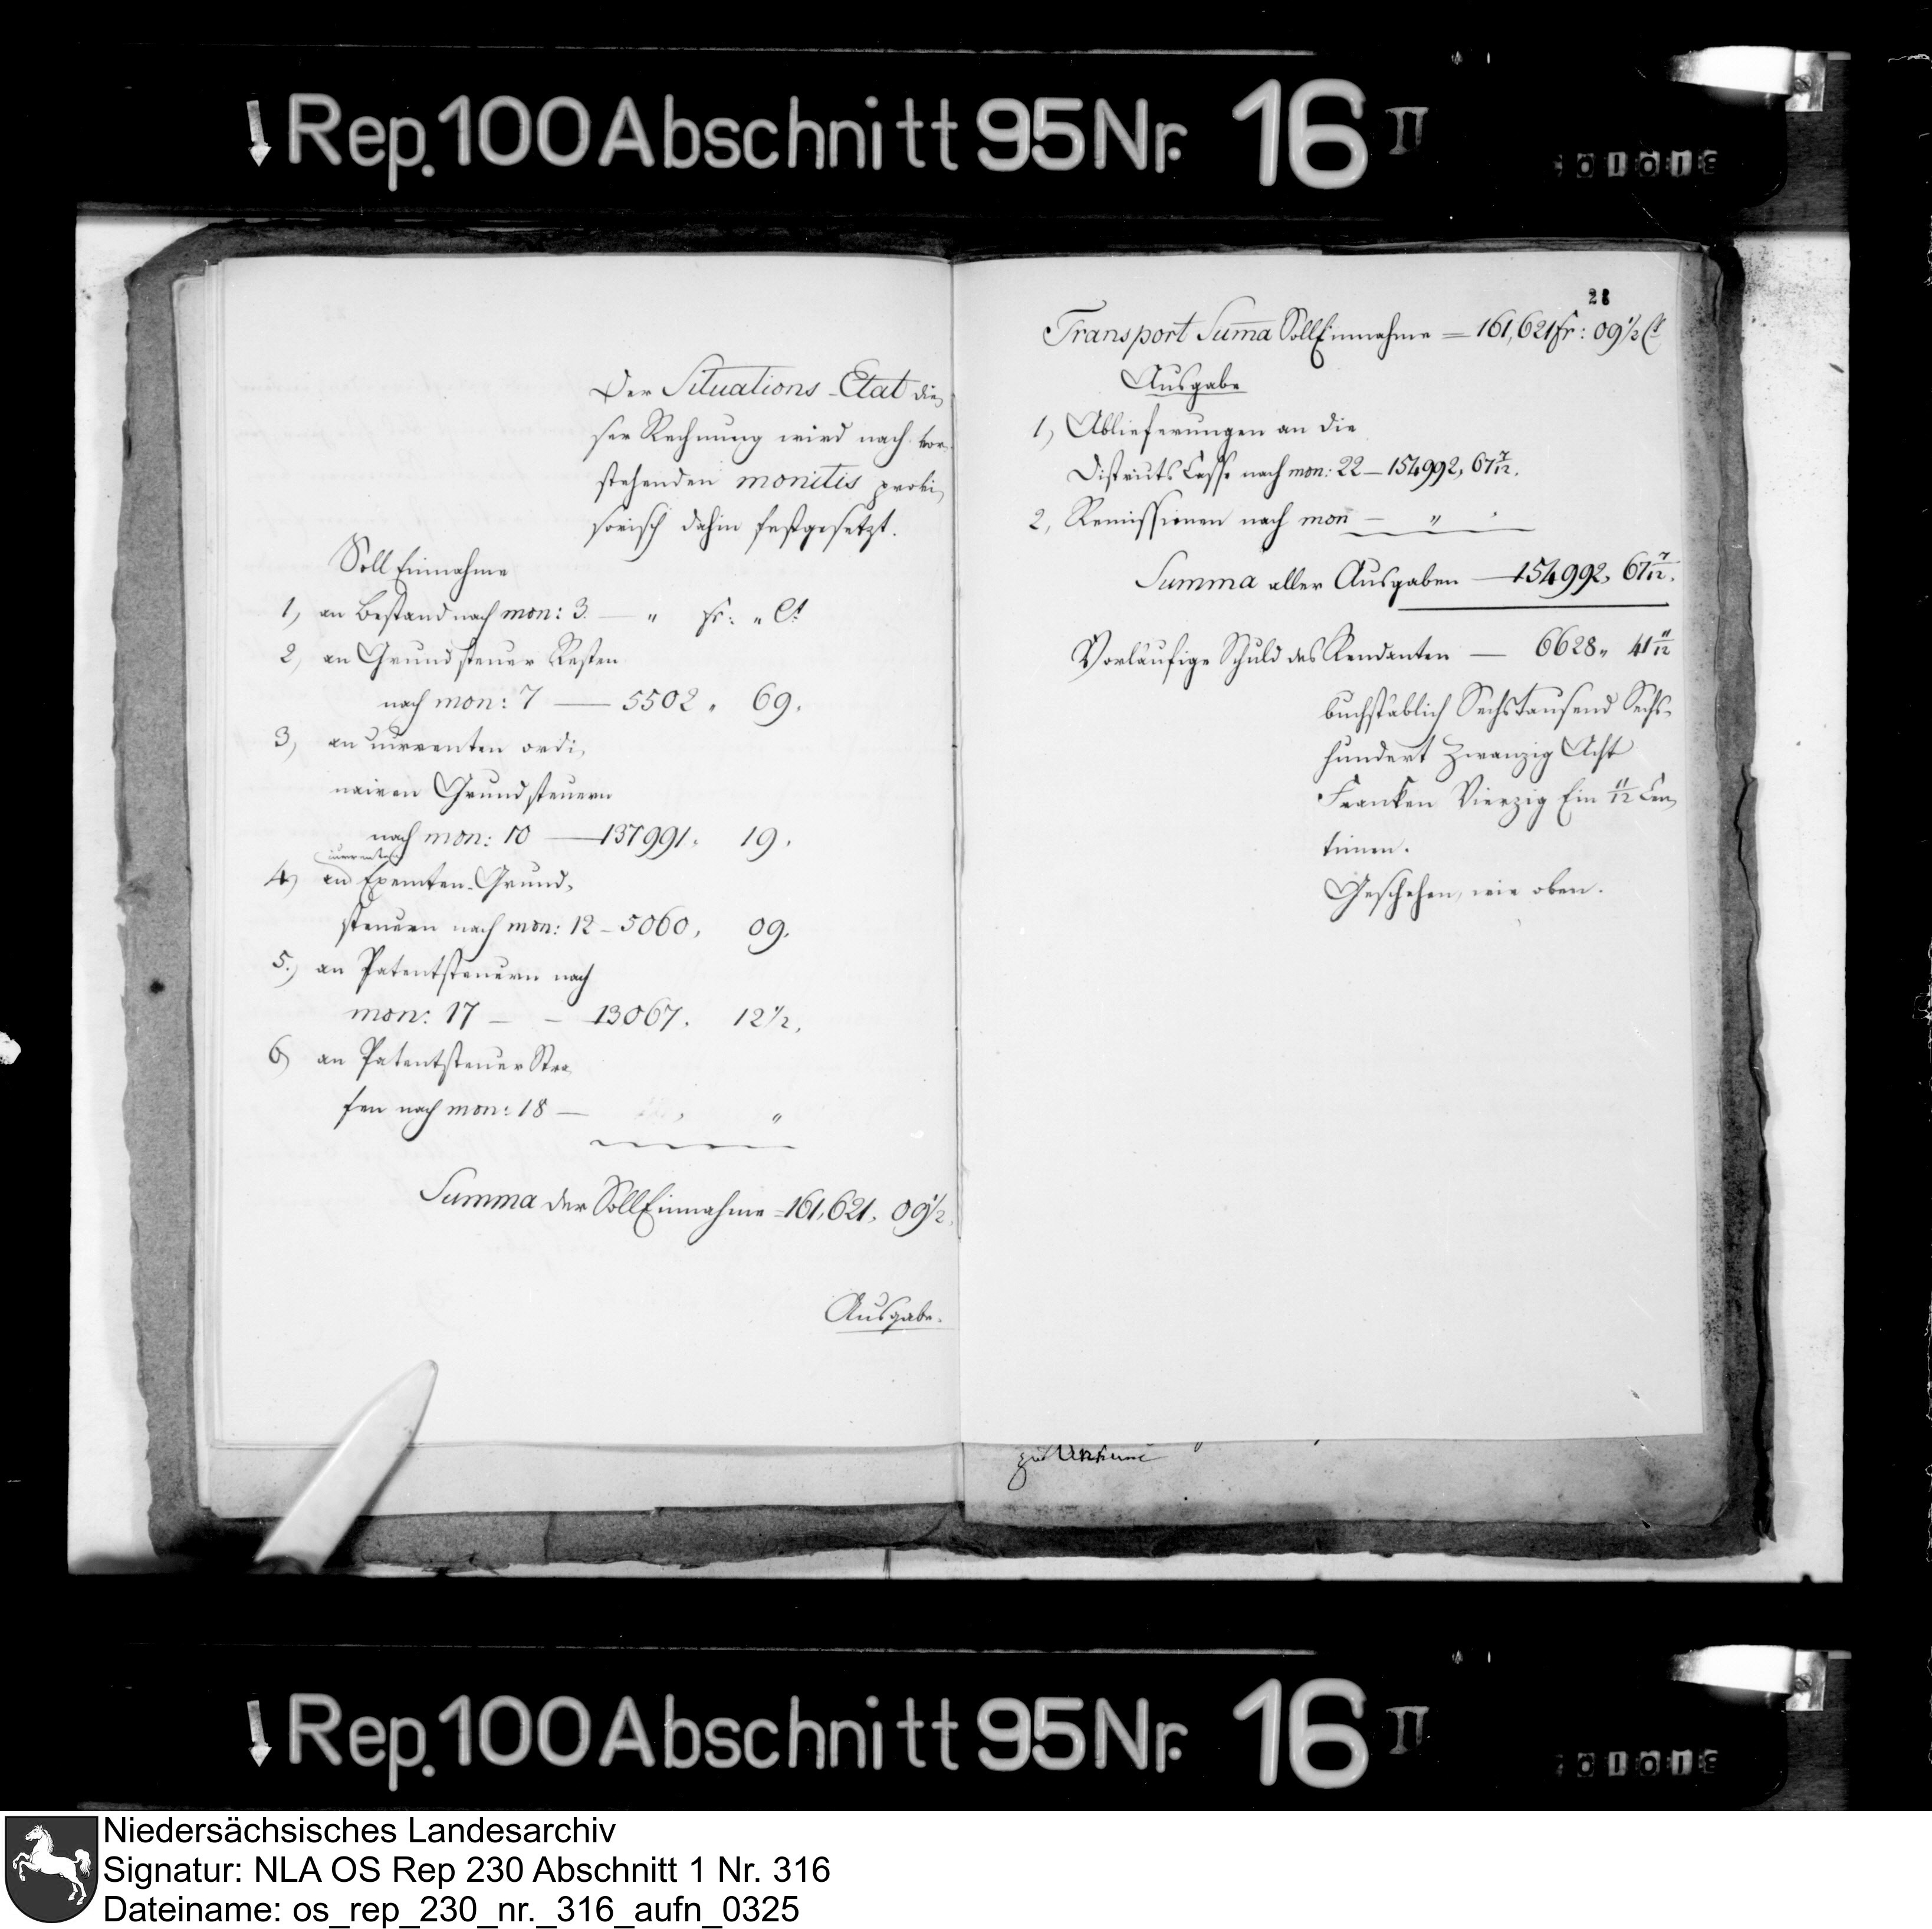 Rep. 100 Abschnitt 95 Nr. 16 II
Der Situations-Etat die,
ser Rechnung wird nach vor-
stehenden monitis provi,
sorisch dahin festgesetzt.
Soll Einnahme
1, an Bestand nach mon: 3. — " fr: " Ct
2, an Grundsteuer Resten
nach mon: 7 — 5502 , 69.
3, an currenten ordi,
nairen Grundsteuern
nach mon: 10 — 137991. 19.
currenten
4) an Exemten-Grund,
steuern nach mon: 12 — 5060, 09.
5.) an Patentsteuern nach
mon: 17 — — 13067. 12 1/2.
6) an Patentsteuer Stra,
fen nach mon: 18 — "
Summa der Soll Einnahme = 161,621, 09 1/2.
Ausgabe.
28
Transport Summa Soll Einnahme = 161,621 fr: 09 1/2 Ct
Ausgabe
1, Ablieferungen an die
Districts Casse nach mon: 22 — 154992, 67 7/12.
2, Remissionen nach mon — "
Summa aller Ausgaben — 154992, 67 7/12.
Vorläufige Schuld des Rendanten — 6628 " 41 11/12
buchstäblich Sechstausend Sechs-
hundert Zwanzig Acht
Franken Vierzig Ein 11/12 Cen,
timen.
Geschehen, wie oben.
Rep. 100 Abschnitt 95 Nr. 16 II
Niedersächsisches Landesarchiv
Signatur: NLA OS Rep 230 Abschnitt 1 Nr. 316
Dateiname: os_rep_230_nr._316_aufn_0325